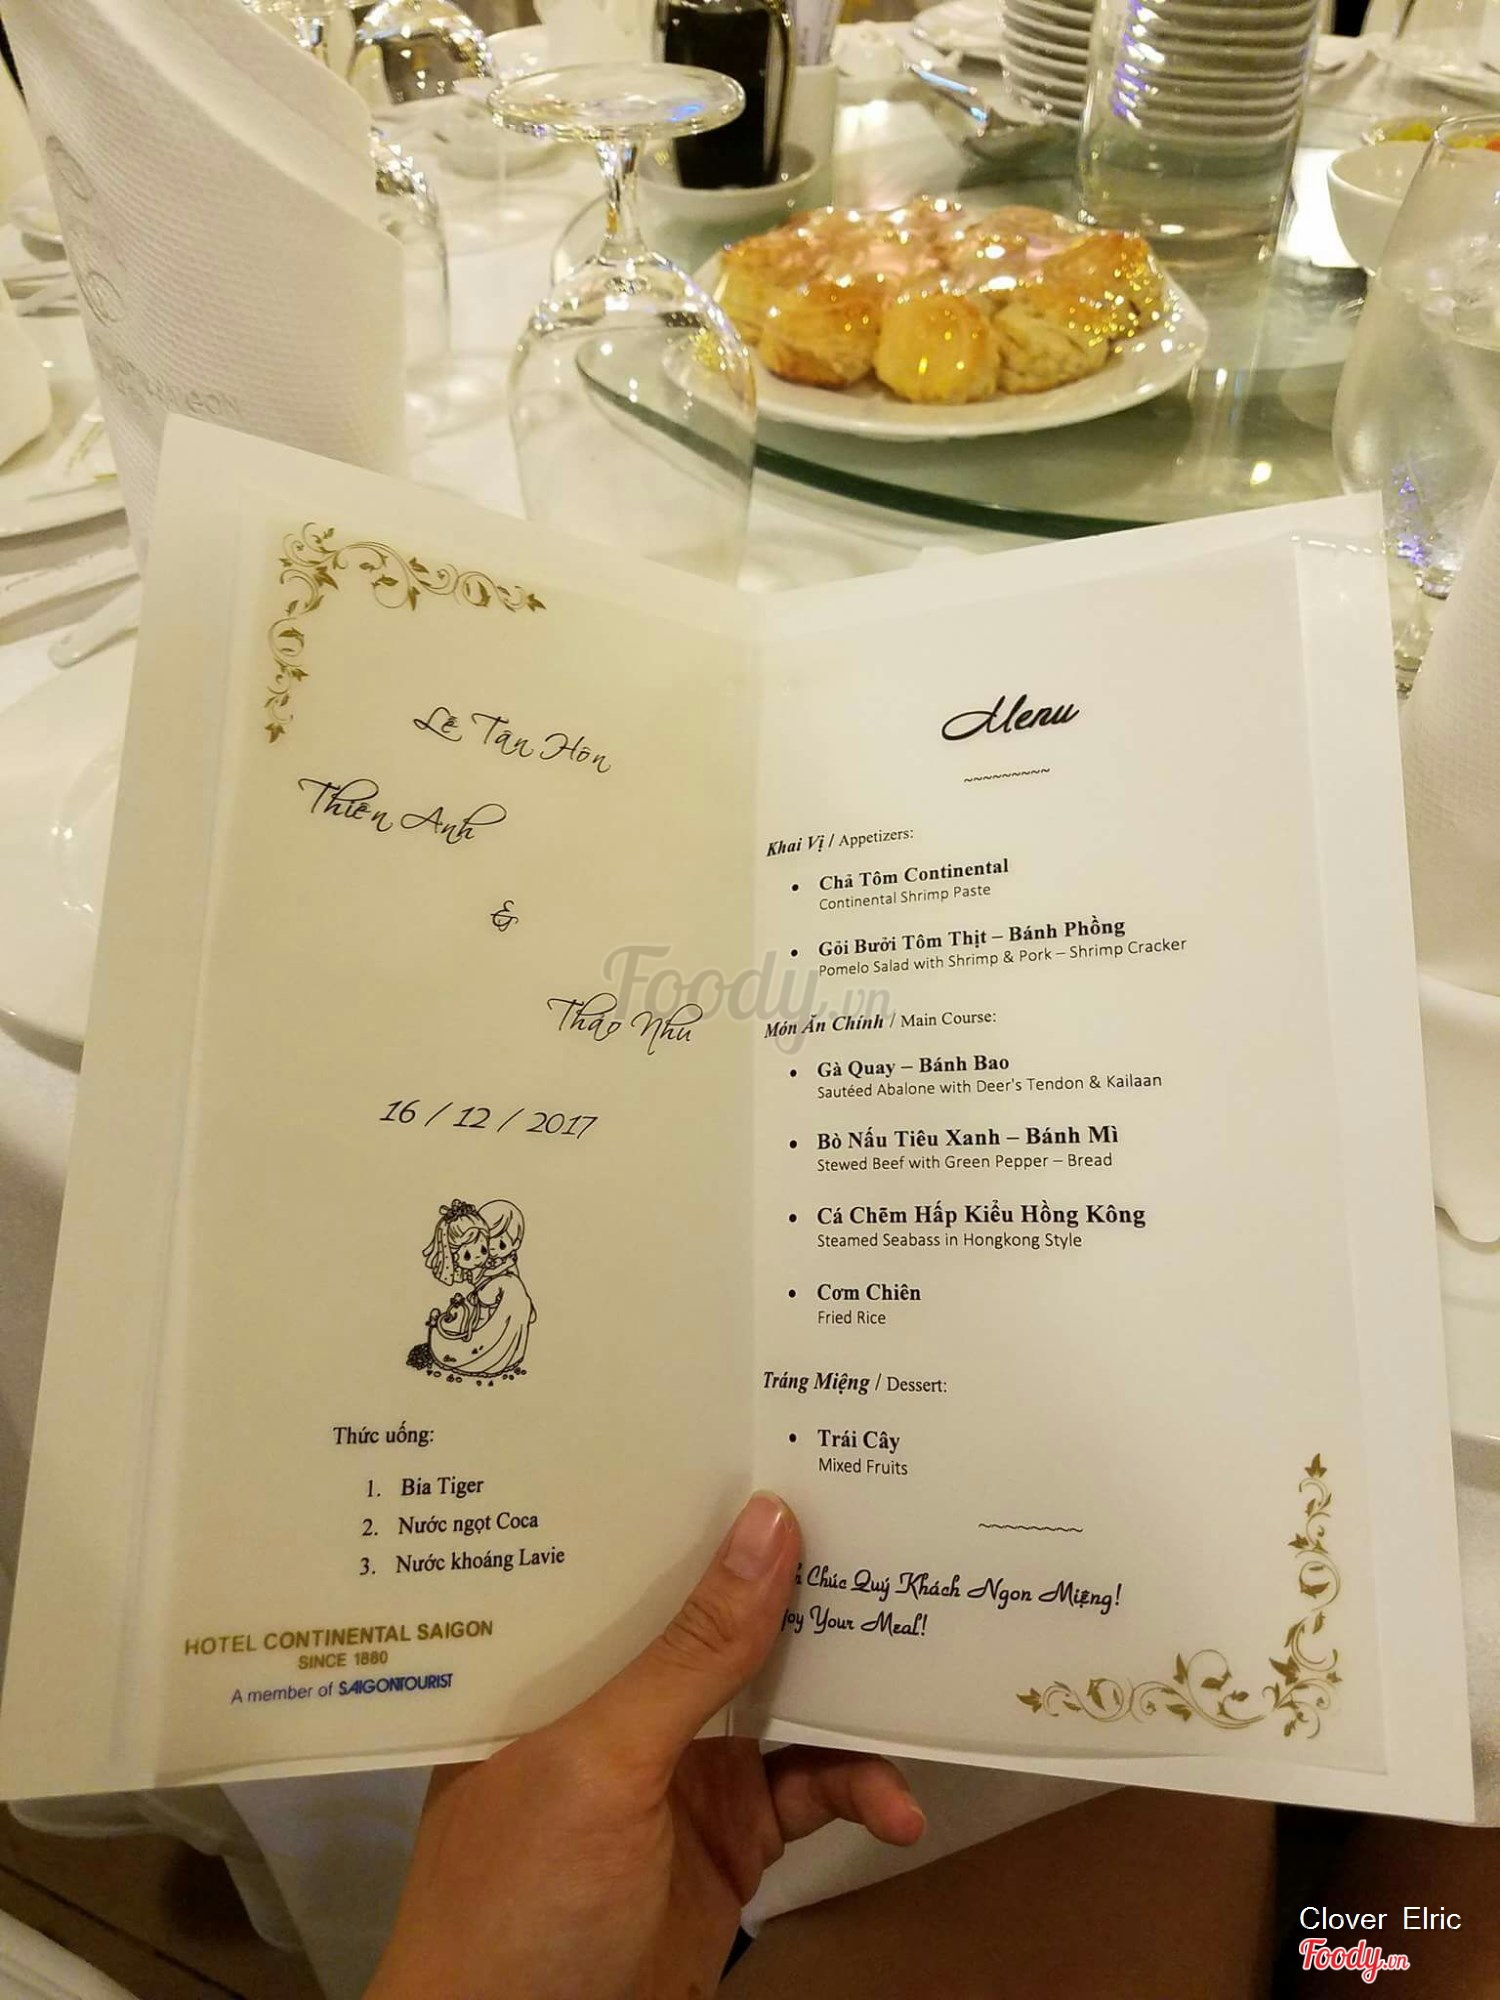 Lễ Tân Hôn
Thiên Anh
&
Thảo Như
16 / 12 / 2017
Thức uống:
1. Bia Tiger
2. Nước ngọt Coca
3. Nước khoáng Lavie
HOTEL CONTINENTAL SAIGON
SINCE 1880
A member of SAIGONTOURIST
Menu
~~~~~~~~~
Khai Vị / Appetizers:
• Chả Tôm Continental
Continental Shrimp Paste
• Gỏi Bưởi Tôm Thịt – Bánh Phồng
Pomelo Salad with Shrimp & Pork – Shrimp Cracker
Món Ăn Chính / Main Course:
• Gà Quay – Bánh Bao
Sautéed Abalone with Deer's Tendon & Kailaan
• Bò Nấu Tiêu Xanh – Bánh Mì
Stewed Beef with Green Pepper – Bread
• Cá Chẽm Hấp Kiểu Hồng Kông
Steamed Seabass in Hongkong Style
• Cơm Chiên
Fried Rice
Tráng Miệng / Dessert:
• Trái Cây
Mixed Fruits
~~~~~~~~~
Chúc Quý Khách Ngon Miệng!
Your Meal!
Foody.vn
Clover Elric
Foody.vn